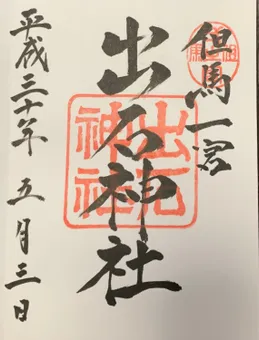 但馬一宮
出石神社
出石
神社
平成三十年 五月三日